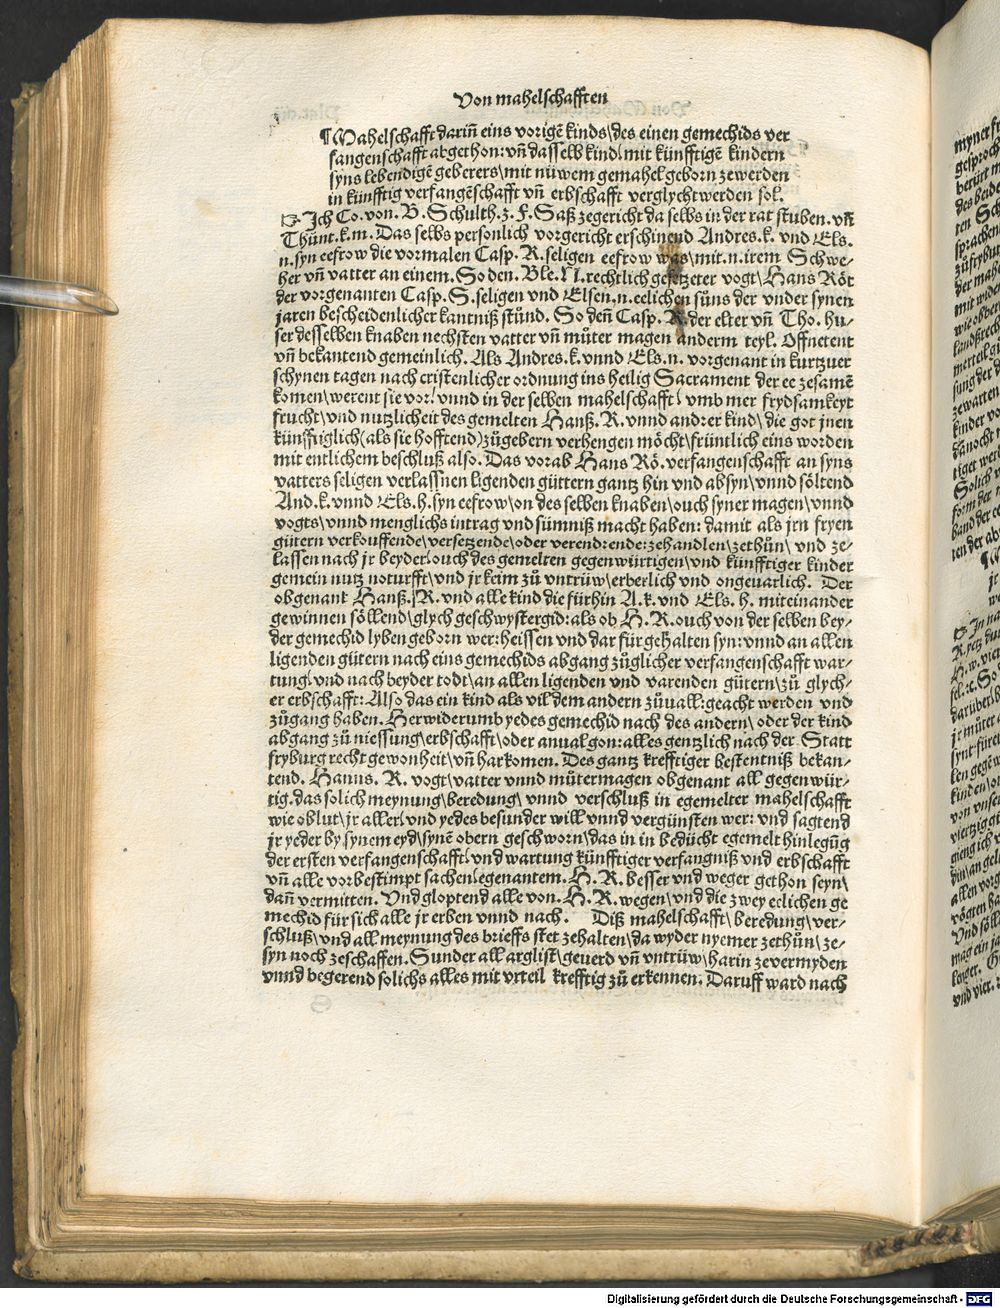 Von mahelschafften
¶ Mahelschafft dariñ eins vorigẽ kinds/des einen gemechids ver
fangenschafft abgethon: vñ dasselb kind/ mit künfftigẽ kindern
syns lebendigẽ geberers/ mit nüwem gemahel geborn zewerden
in künfftig verfangẽschafft vñ erbschafft verglycht werden sol.
Ich Co. von. B. Schulth. z. F. Saß zegericht da selbs in der rat stuben. vñ
Thůnt. k. m. Das selbs personlich vorgericht erschinend Andres. k. vnd Els.
n. syn eefrow die vormalen Casp. R. seligen eefrow was/ mit. n. irem Schwe-
her vñ vatter an einem. So den. Ble. N. rechtlich gesetzeter vogt/ Hans Röt
der vorgenanten Casp. S. seligen vnd Elsen. n. eelichen süns der vnder synen
jaren bescheidenlicher kantniß stůnd. So deñ Casp. R. der elter vñ Tho. hu-
ser desselben knaben nechsten vatter vñ můter magen anderm teyl. Offnetent
vñ bekantend gemeinlich. Als Andres. k. vnnd Els. n. vorgenant in kurtzuer
schynen tagen nach cristenlicher ordnung ins heilig Sacrament der ee zesamẽ
komen/ werent sie vor/ vnnd in der selben mahelschafft/ vmb mer frydsamkeyt
frucht/ vnd nutzlicheit des gemelten Hanß. R. vnnd andrer kind/ die got jnen
künfftiglich (als sie hofftend) zůgebern verhengen möcht/ früntlich eins worden
mit entlichem beschluß also. Das vorab Hans Rö. verfangenschafft an syns
vatters seligen verlassnen ligenden güttern gantz hin vnd absyn/ vnnd söltend
And. k. vnnd Els. h. syn eefrow/ on des selben knaben/ ouch syner magen/ vnnd
vogts/ vnnd menglichs intrag vnd sümniß macht haben: damit als jrn fryen
gütern verkouffende/ versetzende/ oder verendrende: zehandlen/ zethůn/ vnd ze-
lassen nach jr beyder/ ouch des gemelten gegenwürtigen/ vnd künfftiger kinder
gemein nutz noturfft/ vnd jr keim zů vntrüw/ erberlich vnd ongeuarlich. Der
obgenant Hanß. R. vnd alle kind die fürhin A. k. vnd Els. h. miteinander
gewinnen söllend/ glych geschwystergid: als ob H. R. ouch von der selben bey-
der gemechid lyben geborn wer: heissen vnd dar für gehalten syn: vnnd an allen
ligenden gütern nach eins gemechids abgang zůglicher verfangenschafft war-
tung/ vnd nach beyder todt/ an allen ligenden vnd varenden gütern/ zů glych-
er erbschafft: Also das ein kind als vil dem andern zůuall: geacht werden vnd
zůgang haben. Herwiderumb yedes gemechid nach des andern/ oder der kind
abgang zů niessung/ erbschafft/ oder anual gon: alles gentzlich nach der Statt
fryburg recht gewonheit/ vñ harkomen. Des gantz krefftiger bestentniß bekan-
tend. Hanns. R. vogt/ vatter vnnd můtermagen obgenant all gegenwür-
tig. das solich meynung/ beredung/ vnnd verschluß in egemelter mahelschafft
wie oblut/ jr aller/ vnd yedes besunder will vnnd vergünsten wer: vnd sagtend
jr yeder by synem eyd/ synẽ obern geschworn/ das in in bedücht egemelt hinlegũg
der ersten verfangenschafft/ vnd wartung künfftiger verfangniß vnd erbschafft
vñ alle vorbestimpt sachen/ egenantem. H. R. besser vnd weger gethon seyn/
dañ vermitten. Vnd gloptend alle von. H. R. wegen/ vnd die zwey eelichen ge
mechid für sich alle jr erben vnnd nach. Diß mahelschafft/ beredung/ ver-
schluß/ vnd all meynung des brieffs stet zehalten/ da wyder nyemer zethůn/ ze-
syn noch zeschaffen. Sunder all arglist/ geuerd vñ vntrüw/ harin zevermyden
vnnd begerend solichs alles mit vrteil krefftig zů erkennen. Daruff ward nach
Digitalisierung gefördert durch die Deutsche Forschungsgemeinschaft - DFG